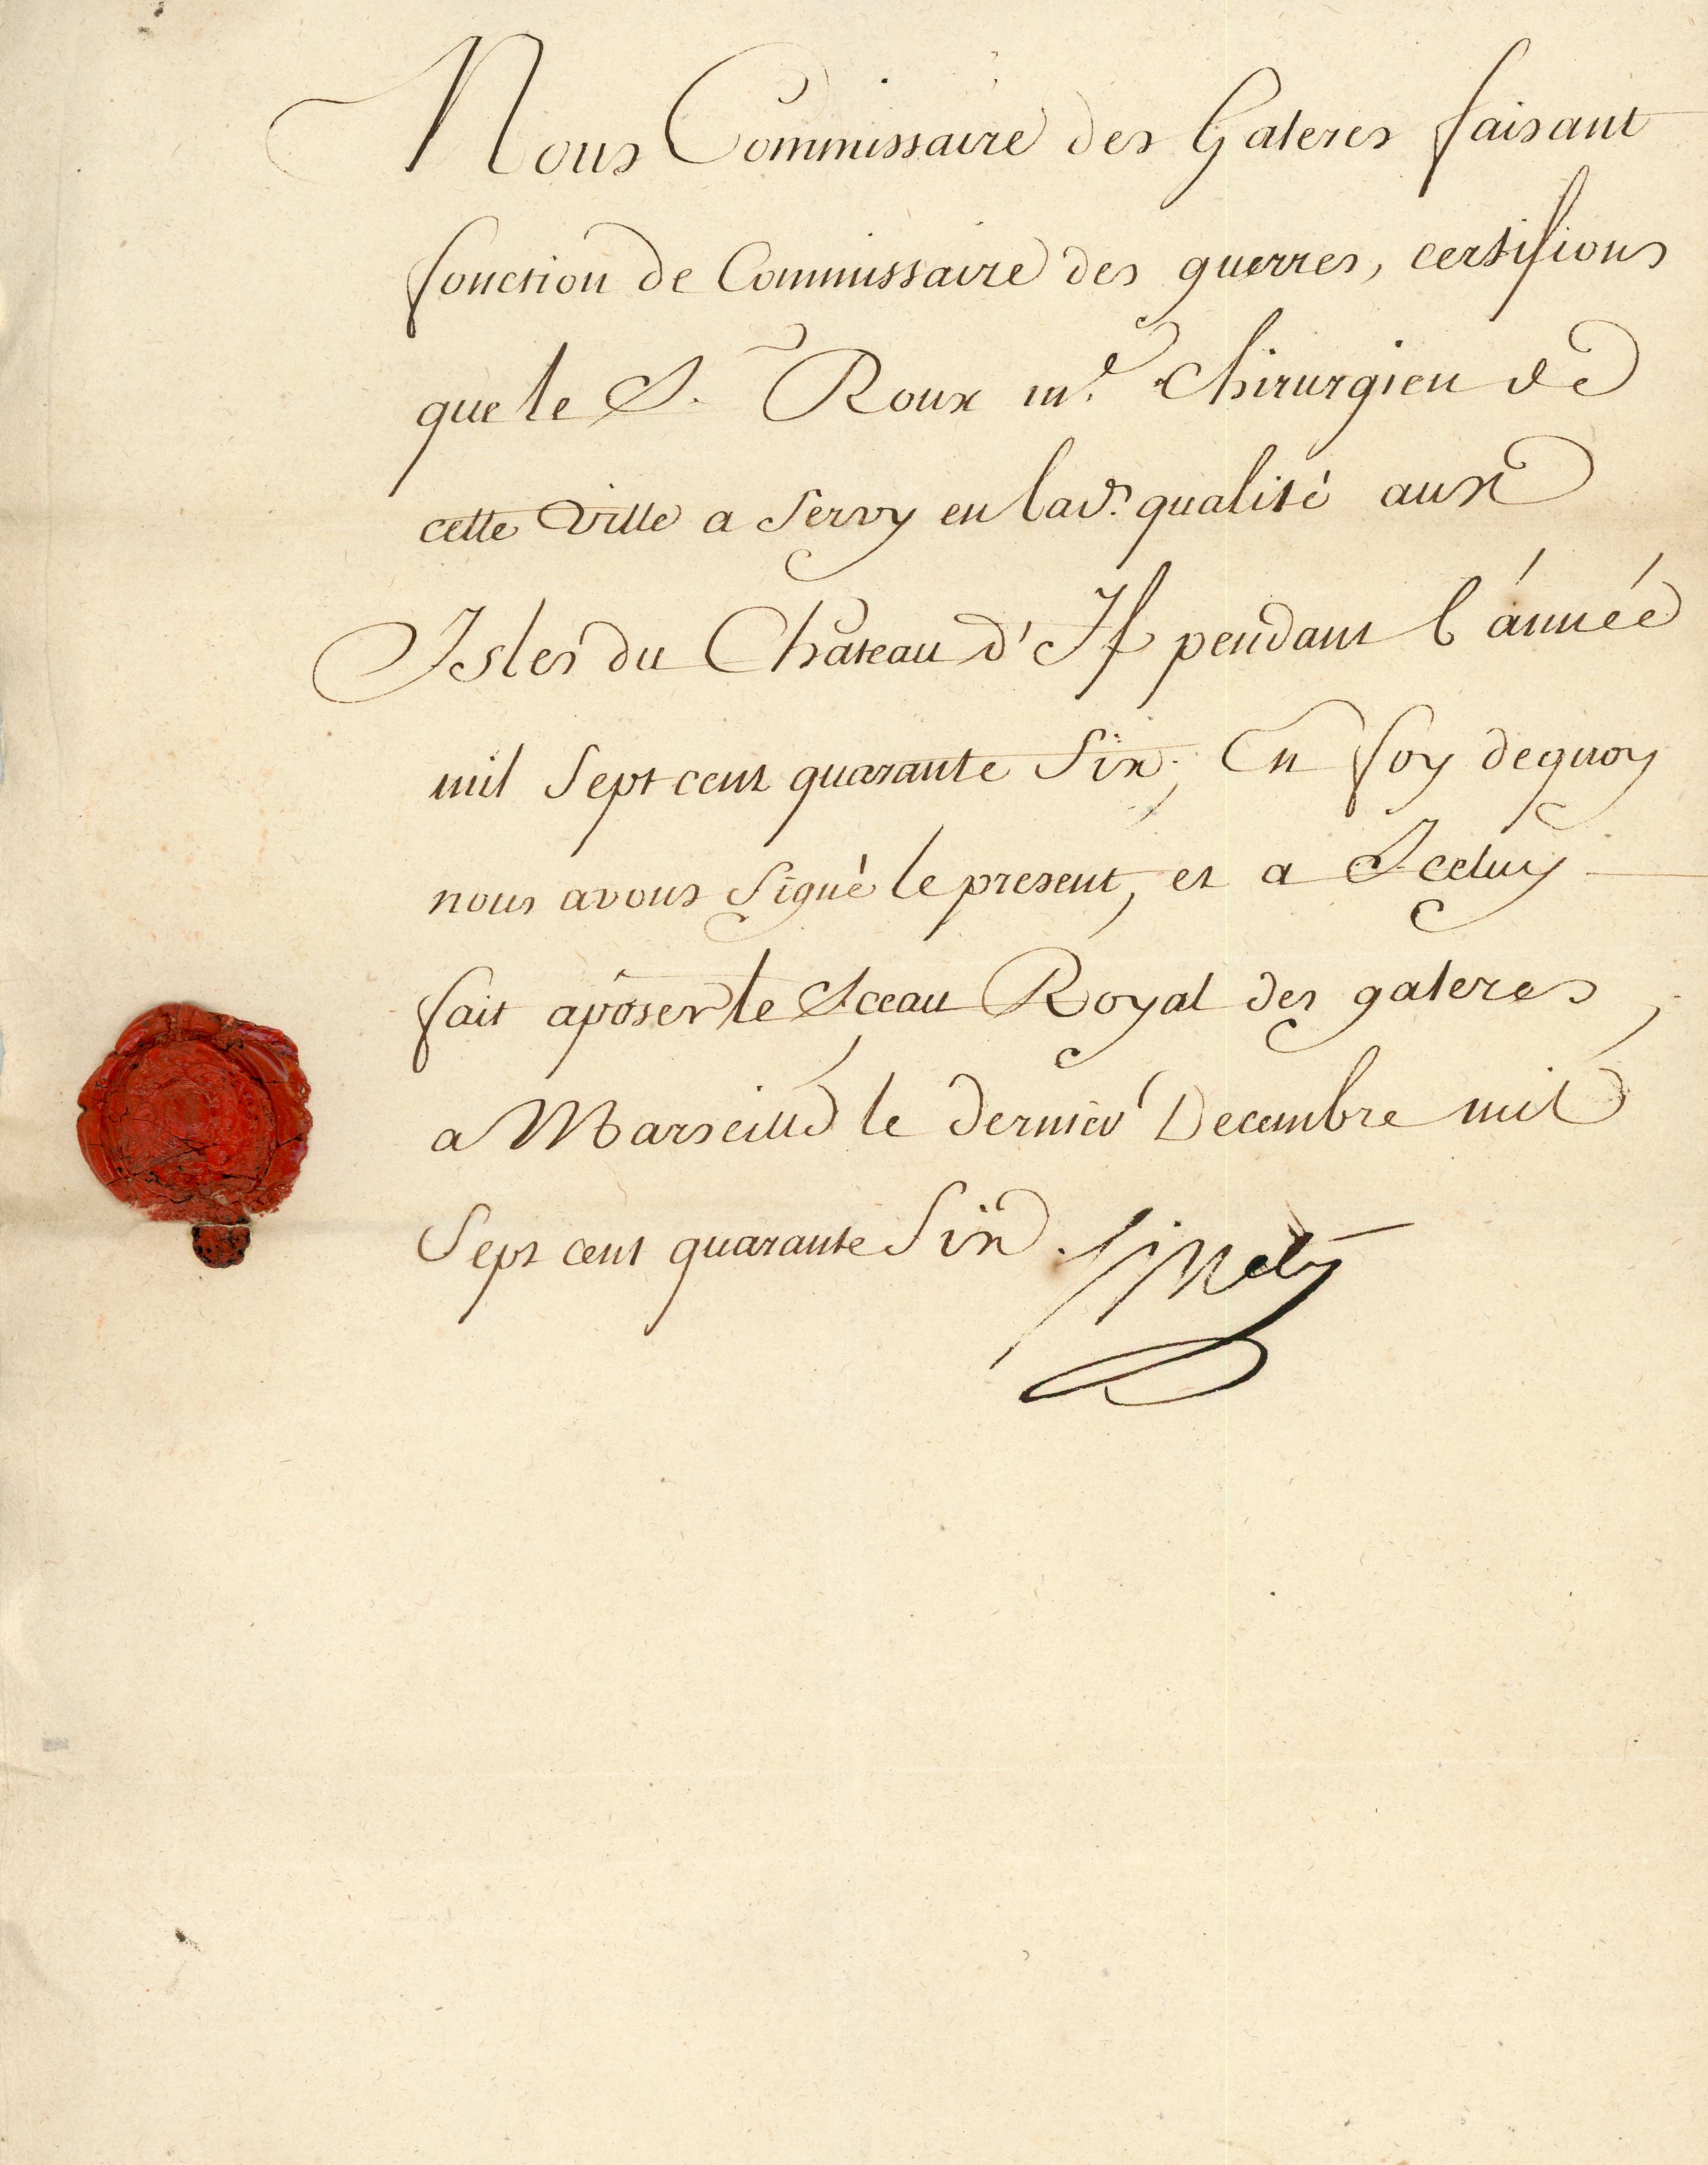 Nous Commissaire des Galeres faisant
fonction de Commissaire des guerres, certifions
que le S. Roux m.e Chirurgien de
cette ville a servy en lad. qualité aux
Isles du Chateau d'If pendant l'année
mil sept cent quarante six; En foy dequoy
nous avons signé le present, et a Iceluy
fait aposer le Sceau Royal des galeres,
a Marseille le dernier Decembre mil
sept cent quarante six. Sinety